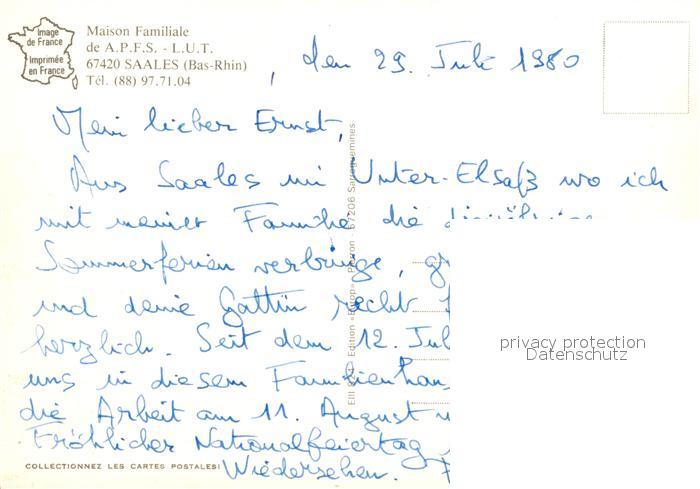 Image
de France
Imprimée
en France
Maison Familiale
de A.P.F.S. - L.U.T.
67420 SAALES (Bas-Rhin)
Tél. (88) 97.71.04
, den 29. Juli 1980
Mein lieber Ernst,
Aus Saales im Unter-Elsaß wo ich
mit meiner Familie die
Sommerferien verbringe,
und deine Gattin recht
herzlich. Seit dem 12. Jul
uns in diesem Familienhau
die Arbeit am 11. August
Fröhlicher Nationalfeiertag
Wiedersehen.
COLLECTIONNEZ LES CARTES POSTALES!
Edition «Europ» Pierron - 57206 Sarreguemines
privacy protection
Datenschutz